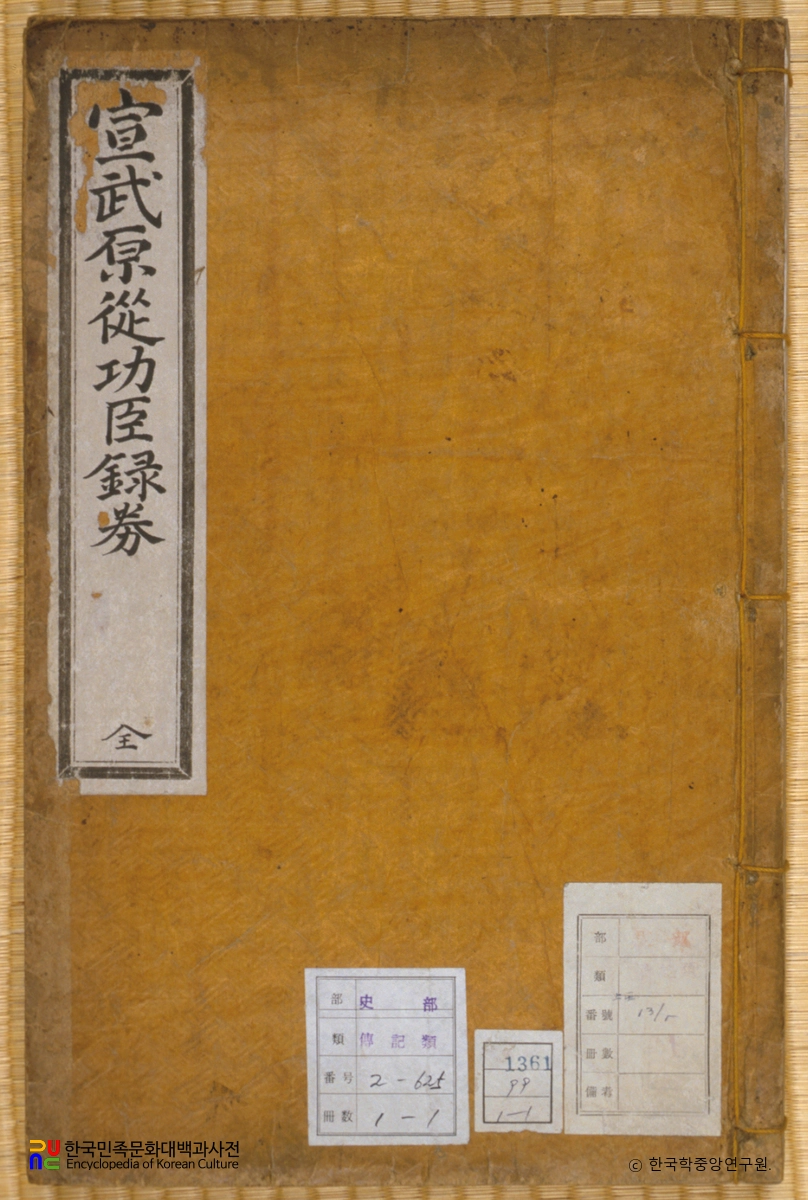 宣武原從功臣録券
全
部 史部
類 傳記類
番号 2-625
冊数 1-1
1361
99
1-1
部
類
番號
冊數
備考
한국민족문화대백과사전
Encyclopedia of Korean Culture
ⓒ 한국학중앙연구원.